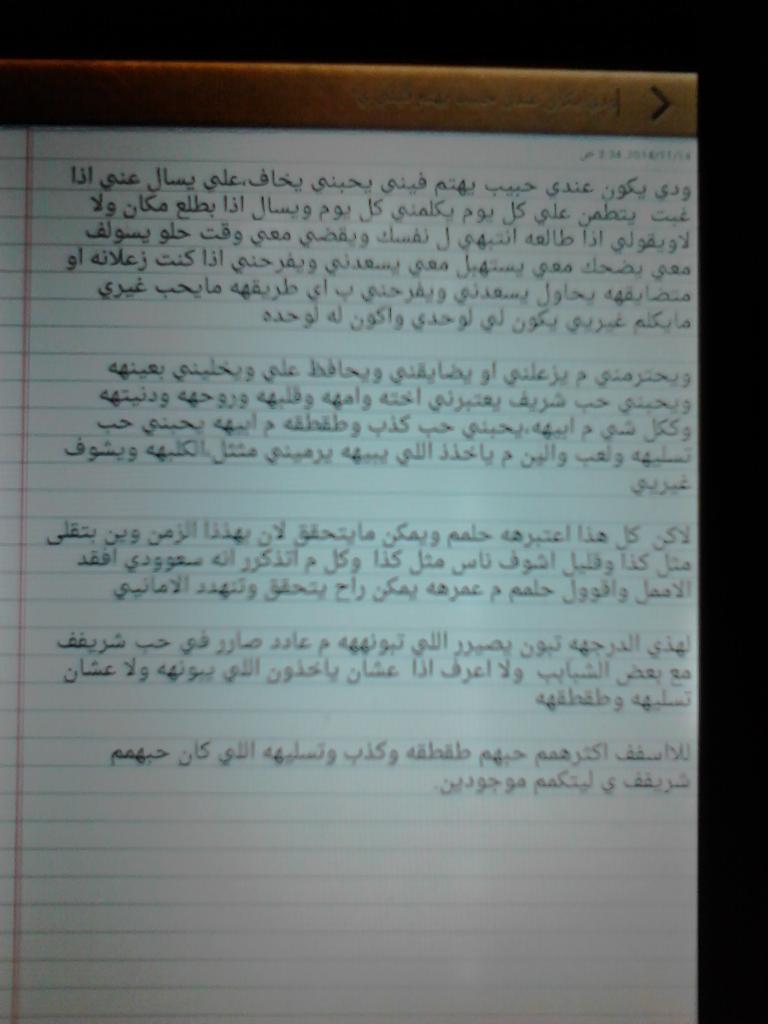 ودي يكون عندي حبيب يهتم فيني ي
2014/11/14 3:34 ص
ودي يكون عندي حبيب يهتم فيني يحبني يخاف،علي يسال عني اذا
غبت يتطمن علي كل يوم يكلمني كل يوم ويسال اذا بطلع مكان ولا
لاويقولي اذا طالعه انتبهي ل نفسك ويقضي معي وقت حلو يسولف
معي يضحك معي يستهبل معي يسعدني ويفرحني اذا كنت زعلانه او
متضايقهه يحاول يسعدني ويفرحني ب اي طريقهه مايحب غيري
مايكلم غيريي يكون لي لوحدي واكون له لوحده
ويحترمني م يزعلني او يضايقني ويحافظ علي ويخليني بعينهه
ويحبني حب شريف يعتبرني اخته وامهه وقلبهه وروحهه ودنيتهه
وككل شي م ابيهه،يحبني حب كذب وطقطقه م ابيهه يحبني حب
تسليهه ولعب والين م ياخذذ اللي يبيهه يرميني مثثل الكلبهه ويشوف
غيريي
لاكن كل هذا اعتبرهه حلمم ويمكن مايتحقق لان بهذذا الزمن وين بتقلى
مثل كذا وقليل اشوف ناس مثل كذا وكل م اتذكرر انه سعوودي افقد
الاممل واقوول حلمم م عمرهه يمكن راح يتحقق وتنهدد الامانيي
لهذي الدرجهه تبون يصيرر اللي تبونههه م عادد صارر في حب شريفف
مع بعض الشبابب ولا اعرف اذا عشان ياخذون اللي يبونهه ولا عشان
تسليهه وطقطقهه
للااسفف اكثرهمم حبهم طقطقه وكذب وتسليهه اللي كان حبهمم
شريفف ي ليتكمم موجودين.